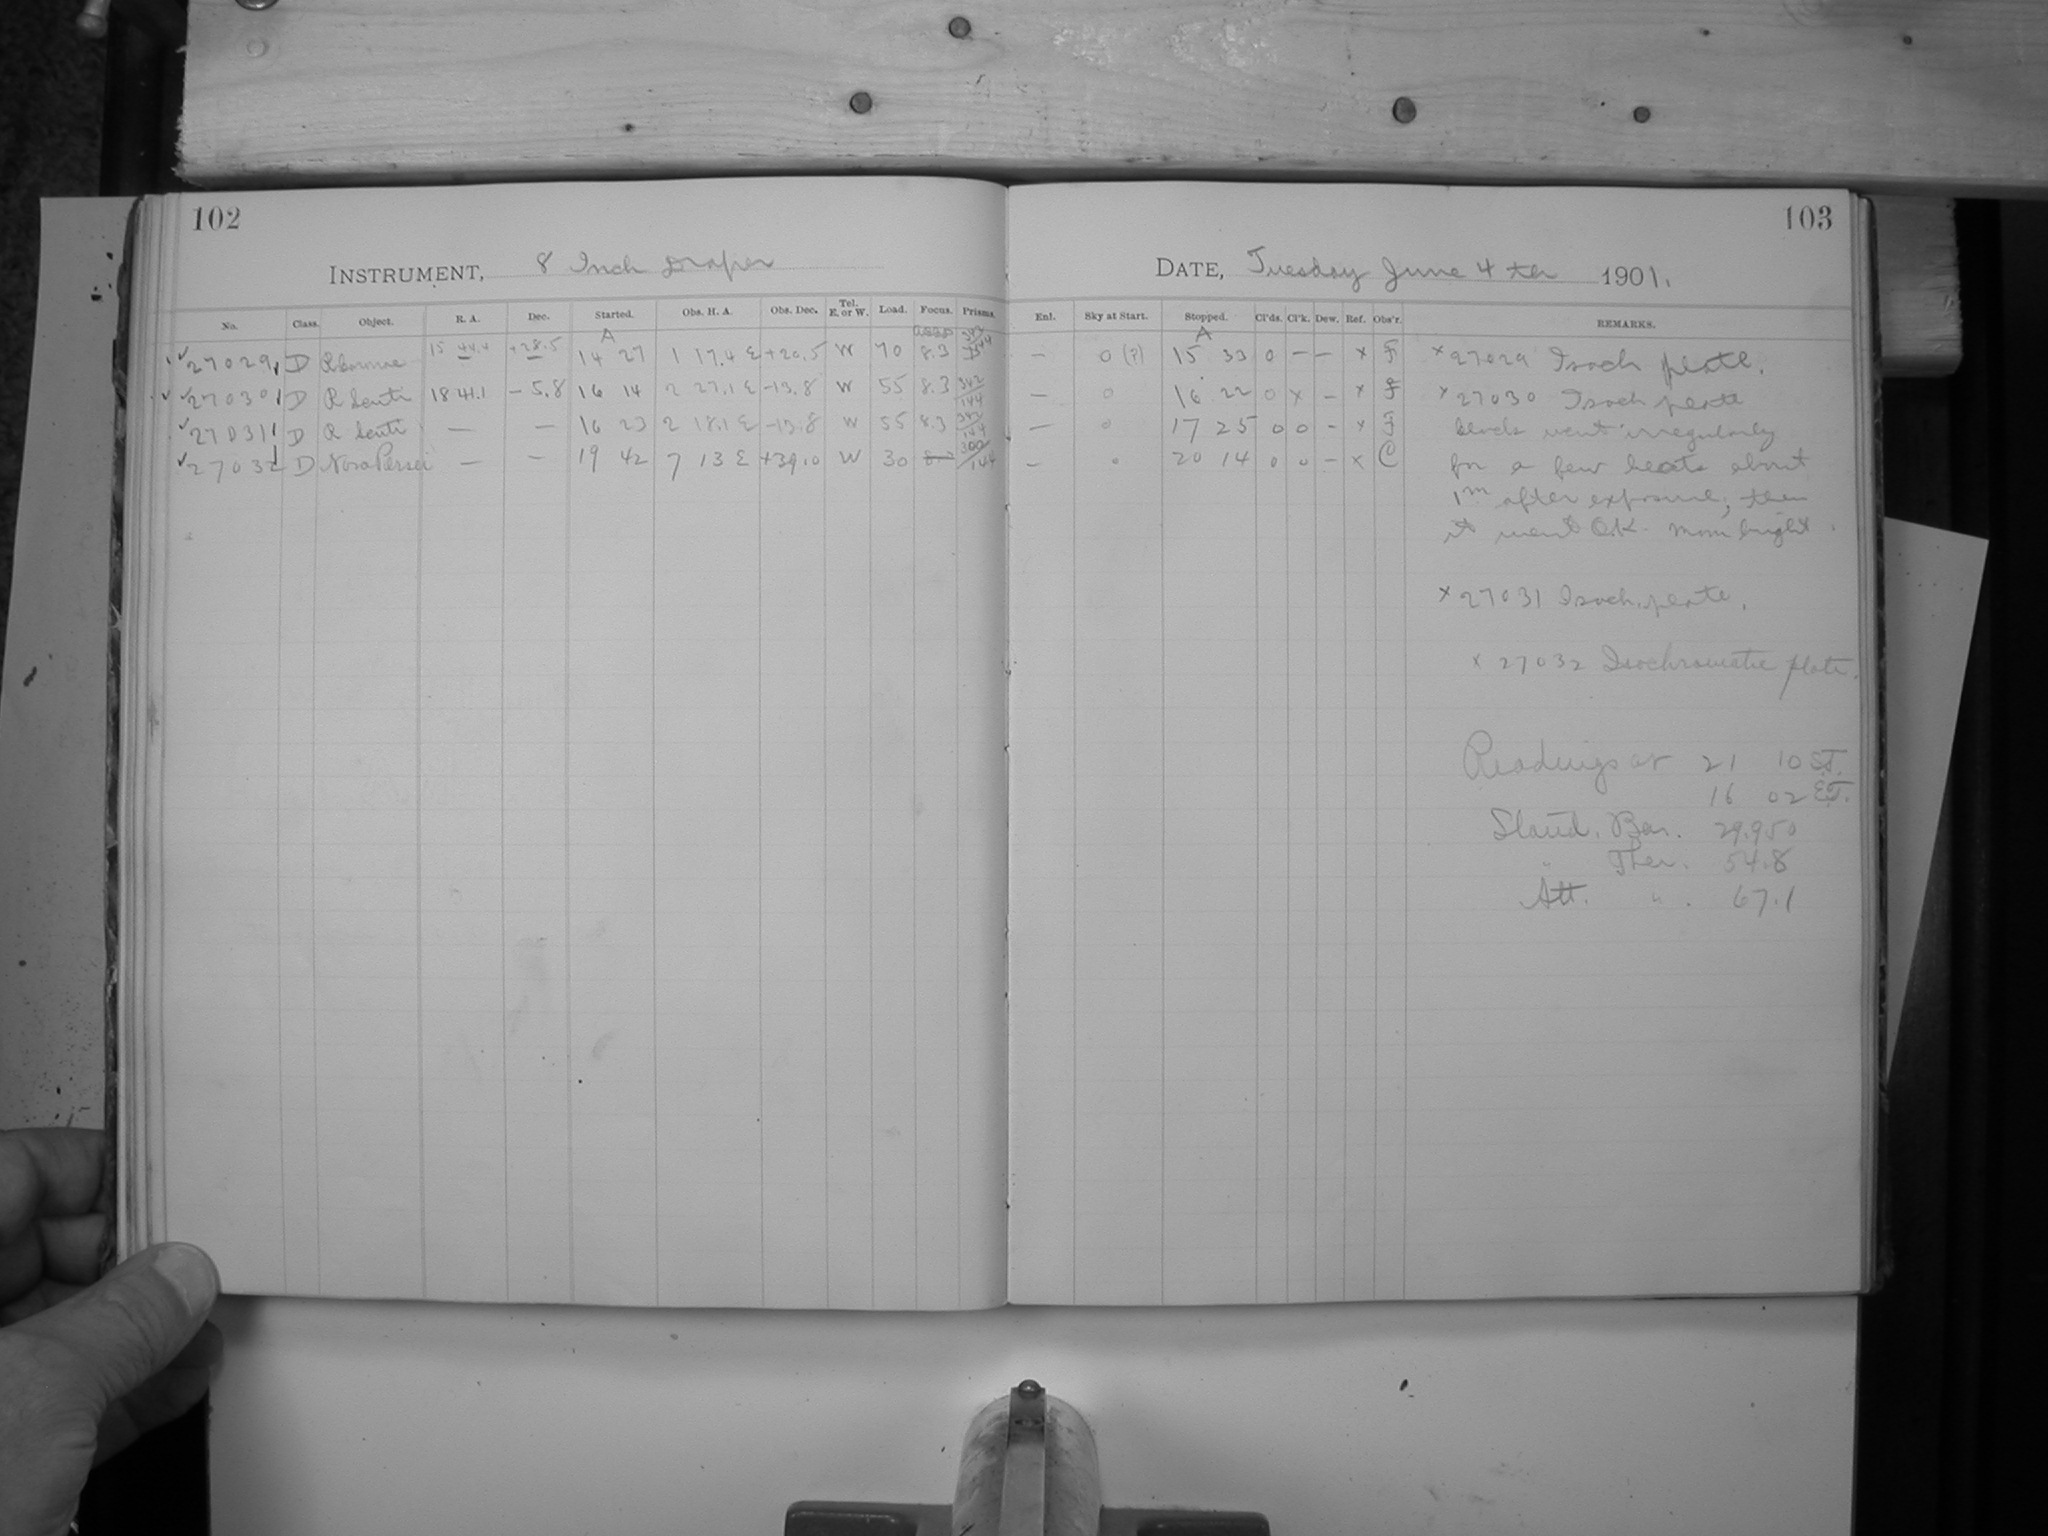 102
103
INSTRUMENT, 8 Inch Draper
DATE, Tuesday June 4th 1901.
No. Class. Object. R. A. Dec. Started. Obs. H. A. Obs. Dec. Tel. E. or W. Load. Focus. Prisms.
Enl. Sky at Start. Stopped. Cl'ds. Cl'k. Dew. Ref. Obs'r. REMARKS.
A
A
27029 D R Coronae 15 44.4 +28.5 14 27 1 17.4 E +20.5 W 70 8.3
— 0 (?) 15 33 0 — — x F
27030 D R Scuti 18 41.1 – 5.8 16 14 2 27.1 E –13.8 W 55 8.3 342/144
— 0 16 22 0 x – x F
27031 D R Scuti — — 16 23 2 18.1 E –13.8 W 55 8.3 342/144
— 0 17 25 0 0 – x F
27032 D Nova Persei — — 19 42 7 13 E +39.0 W 30 300/144
— 0 20 14 0 0 – x C
x 27029 Isoch plate.
x 27030 Isoch plate
clock went irregularly
for a few beats about
1m after exposure; then
it went O.K. moon bright.
x 27031 Isoch. plate.
x 27032 Isochromatic plate.
Readings at 21 10 S.T.
16 02 E.T.
Stand. Bar. 29.950
" Ther. 54.8
Att. " . 67.1